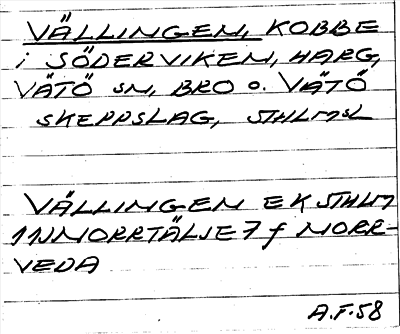 VÄLLINGEN, KOBBE
i SÖDERVIKEN, HARG,
VÄTÖ sn, BRO o. VÄTÖ
SKEPPSLAG, STHLMSL
VÄLLINGEN EK STHLM
11NNORRTÄLJE 7 f NORR-
VEDA
A.F.58